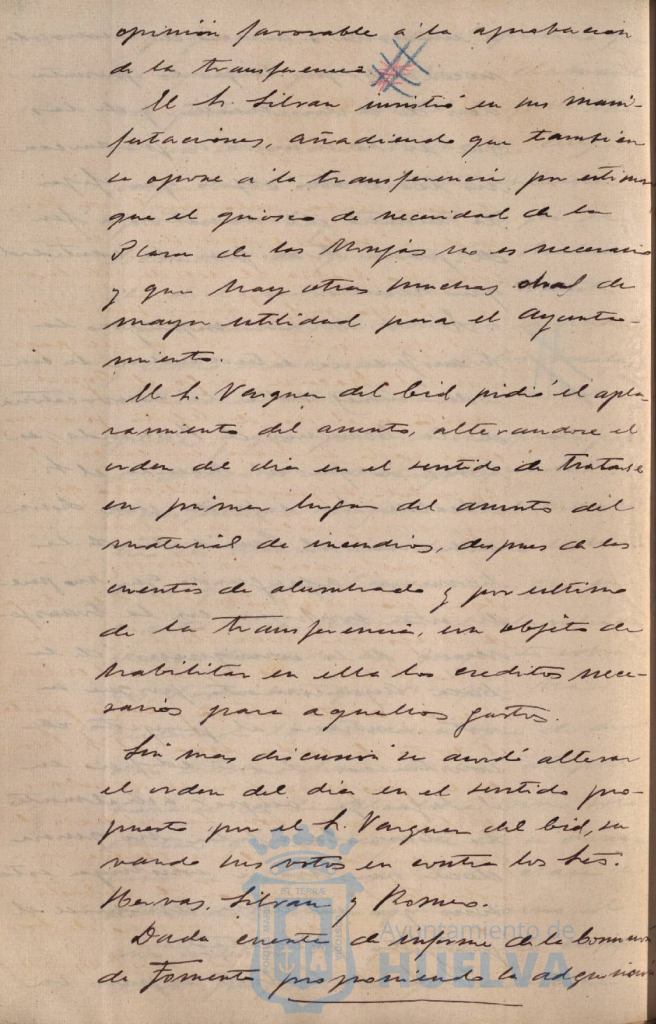 opinión favorable á la aprobación
de la transferencia.
El Sr. Silvan insistió en sus mani-
festaciones, añadiendo que tambien
se opone á la transferencia por estimar
que el quiosco de necesidad de la
Plaza de las Monjas no es necesario
y que hay otras muchas obras de
mayor utilidad para el Ayunta-
miento.
El Sr. Vazquez del Cid pidió el apla-
zamiento del asunto, alterandose el
orden del dia en el sentido de tratarse
en primer lugar del asunto del
material de incendios, despues de las
cuentas de alumbrado y por ultimo
de la transferencia, con objeto de
habilitar en ella los creditos nece-
sarios para aquellos gastos.
Sin mas discusion se acordó alterar
el orden del dia en el sentido pro-
puesto por el Sr. Vazquez del Cid, sal-
vando sus votos en contra los Sres.
Hervas, Silvan y Romero.
Dada cuenta de informe de la Comision
de Fomento proponiendo la adquisicion
Ayuntamiento de
HUELVA